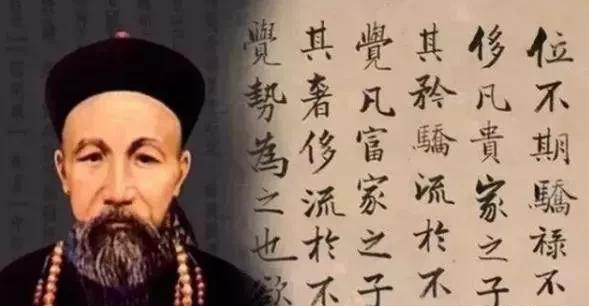 位不期驕祿不
侈凡貴家之子
其矜驕流於不
覺凡富家之子
其奢侈流於不
覺勢為之也欲